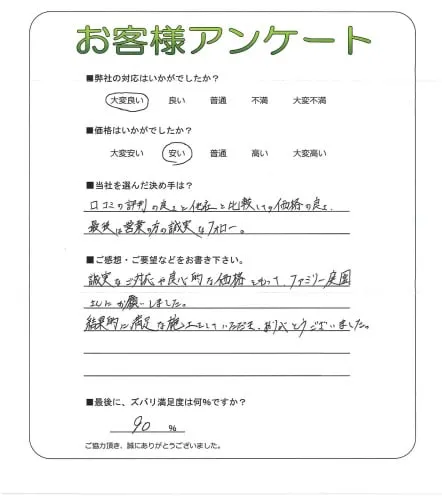 お客様アンケート
■弊社の対応はいかがでしたか？
大変良い 良い 普通 不満 大変不満
■価格はいかがでしたか？
大変安い 安い 普通 高い 大変高い
■当社を選んだ決め手は？
口コミの評判の良さと他社と比較しての価格の良さ、
最後は営業の方の誠実なフォロー。
■ご感想・ご要望などをお書き下さい。
誠実なご対応や良心的な価格もあって、ファミリー庭園
さんにお願いしました。
結果的に満足な施工をしていただき、ありがとうございました。
■最後に、ズバリ満足度は何％ですか？
90 ％
ご協力頂き、誠にありがとうございました。